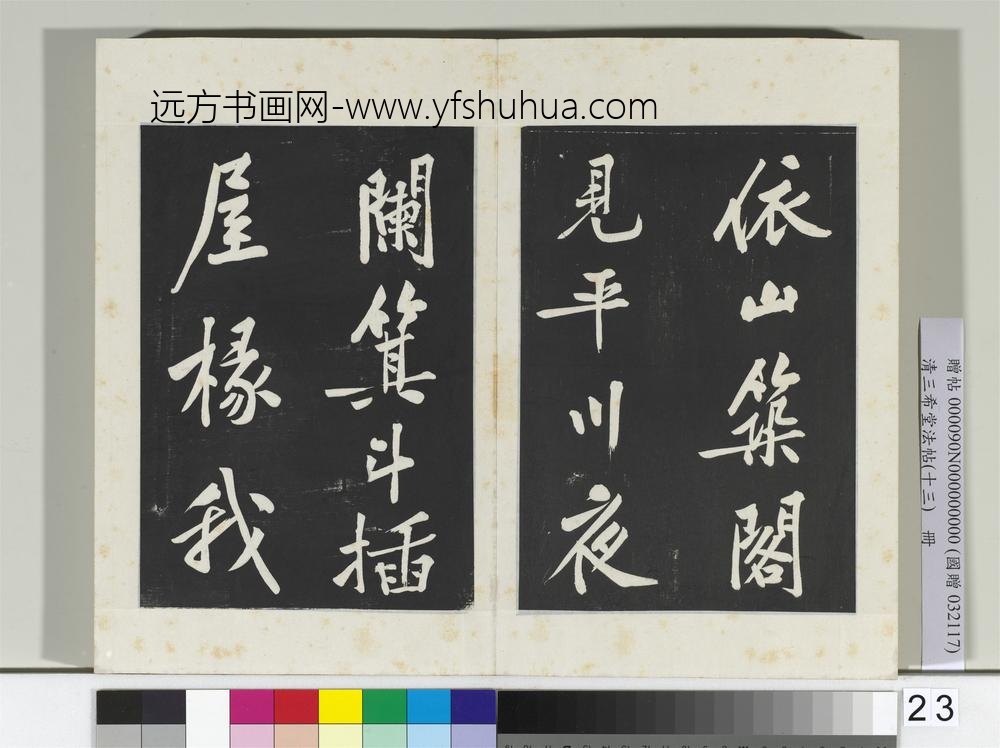 远方书画网-www.yfshuhua.com
依山築閣
見平川夜
闌箕斗插
屋椽我
贈帖 000090N000000000 (國贈 032117)
清三希堂法帖(十三) 冊
23